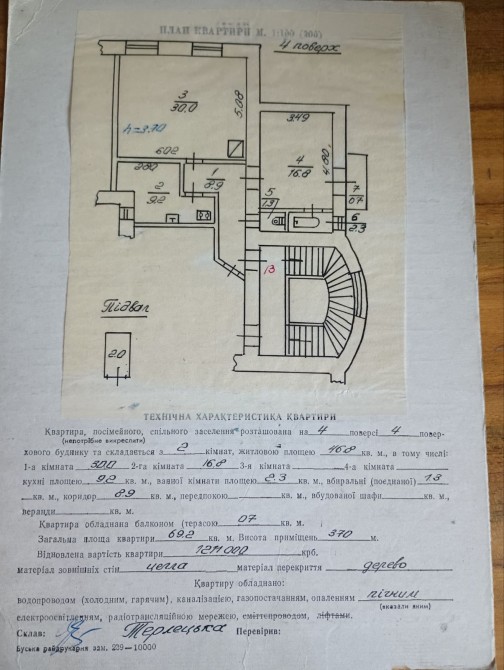 ПЛАН КВАРТИРИ М. 1:100 (200)
4 поверх
3
30.0
5.08
h=3.70
6.02
3.49
4
16.8
4.80
2.80
2
9.2
1
8.9
5
1.3
7
0.7
6
2.3
13
Підвал
2.0
ТЕХНІЧНА ХАРАКТЕРИСТИКА КВАРТИРИ
Квартира, посімейного, спільного заселення розташована на 4 поверсі 4 повер-
(непотрібне викреслити)
хового будинку та складається з 2 кімнат, житловою площею 46.8 кв. м., в тому числі:
1-а кімната 30.0 2-га кімната 16.8 3-я кімната 4-а кімната
кухні площею 9.2 кв. м., ванної кімнати площею 2.3 кв. м., вбиральні (поєднаної) 1.3
кв. м., коридор 8.9 кв. м., передпокою кв. м., вбудованої шафи кв. м.,
веранди кв. м.
Квартира обладнана балконом (терасою) 0.7 кв. м.
Загальна площа квартири 69.2 кв. м. Висота приміщень 3.70 м.
Відновлена вартість квартири крб.
матеріал зовнішніх стін цегла матеріал перекриття дерево
Квартиру обладнано:
водопроводом (холодним, гарячим), каналізацією, газопостачанням, опаленням пічним
(вказати яким)
електроосвітленням, радіотрансляційною мережею, сміттєпроводом, ліфтами.
Склав: Терлецька Перевірив:
Буська райдрукарня зам. 239—10000